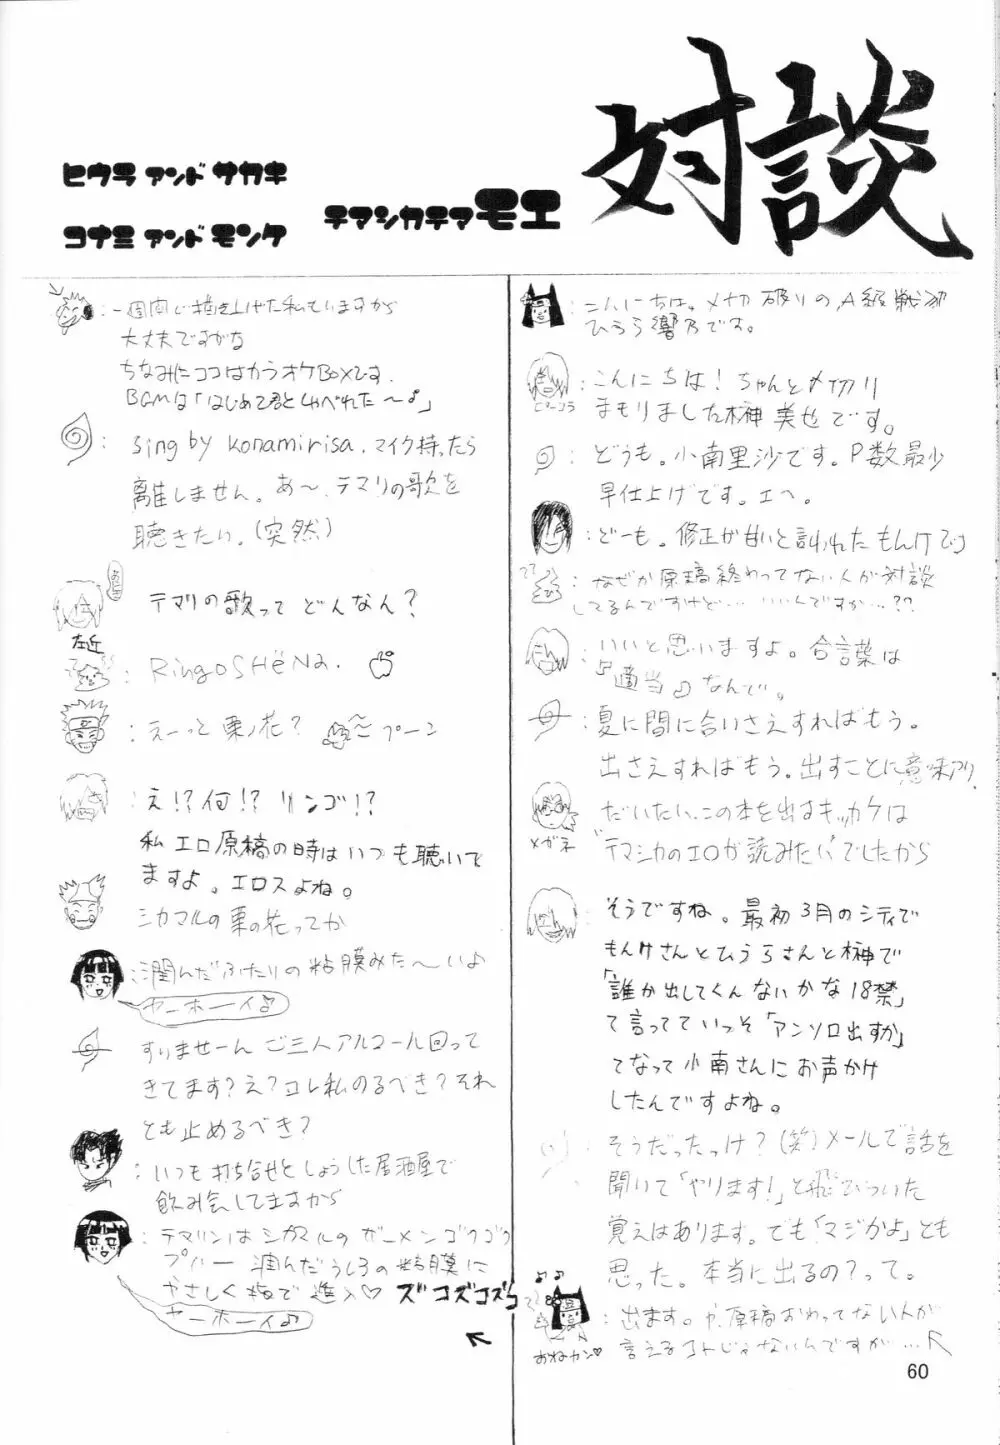 対談
テマシカテマモエ
ヒウラ アンド サカキ
コナミ アンド モンケ
:こんにちは。メ切破りのA級戦犯
ひうら響乃です。
:こんにちは!ちゃんとメ切り
まもりました榊美也です。
ピンコラ
:どうも。小南里沙です。P数最少
早仕上げです。エヘ。
:どーも。修正が甘いと言われたもんけです
:なぜか原稿終わってない人が対談
してるんですけど…いいんですか…??
:いいと思いますよ。合言葉は
『適当』なんで。
:夏に間に合いさえすればもう。
出さえすればもう。出すことに意味アリ。
だいたい、この本を出すキッカケは
"テマシカのエロが読みたい"でしたから
メガネ
:そうですね。最初3月のシティで
もんけさんとひうらさんと榊で
「誰か出してくんないかな18禁」
て言ってていっそ「アンソロ出すか」
てなって小南さんにお声かけ
したんですよね。
:そうだったっけ?(笑)メールで話を
聞いて「やります!」と飛びついた
覚えはあります。でも「マジかよ」とも
思った。本当に出るの?って。
:出ます。か、原稿おわってない人が
言えるコトじゃないんですが…
おねカン♡
:一週間で描き上げた私もいますから
大丈夫ですがな
ちなみにココはカラオケBOXです.
BGMは「はじめて君としゃべれた〜♪」
:sing by konamirisa.マイク持ったら
離しません。あ〜、テマリの歌を
聴きたい。(突然)
:テマリの歌って どんなん?
左近
:RingoSHēNa.
:えーっと栗ノ花? プーン
:え!?何!? リンゴ!?
私エロ原稿の時はいつも聴いて
ますよ。エロスよね。
シカマルの栗の花ってか
:潤んだふたりの粘膜みた〜いよ
ヤーホーイ♪
:すりませーん ご三人アルコール回って
きてます?え?コレ私のるべき?それ
とも止めるべき?
:いつも打ち合せとしょうした居酒屋で
飲み会してますから
:テマリンはシカマルのザーメンゴクゴク
プハー 潤んだうしろの粘膜に
やさしく指で進入♡ ズコズコズコ
ヤーホーイ♪
60